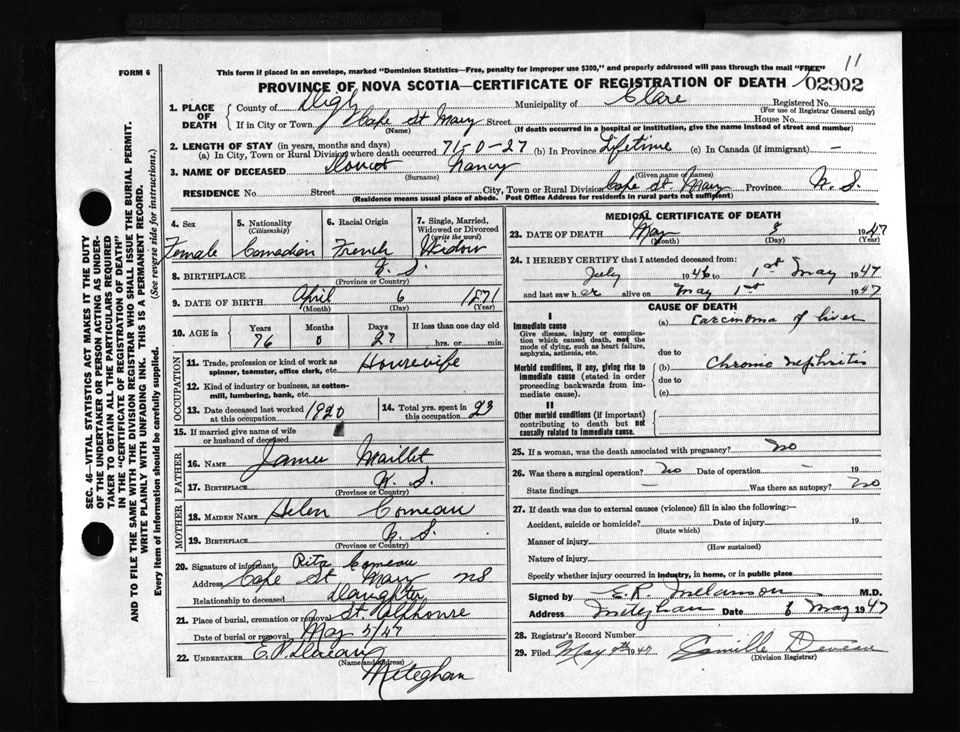 11
FORM 6
This form if placed in an envelope, marked "Dominion Statistics—Free, penalty for improper use $300," and properly addressed will pass through the mail "FREE"
PROVINCE OF NOVA SCOTIA—CERTIFICATE OF REGISTRATION OF DEATH 02902
SEC. 46—VITAL STATISTICS ACT MAKES IT THE DUTY
OF THE UNDERTAKER OR PERSON ACTING AS UNDER-
TAKER TO OBTAIN ALL THE PARTICULARS REQUIRED
IN THE "CERTIFICATE OF REGISTRATION OF DEATH"
AND TO FILE THE SAME WITH THE DIVISION REGISTRAR WHO SHALL ISSUE THE BURIAL PERMIT.
WRITE PLAINLY WITH UNFADING INK. THIS IS A PERMANENT RECORD.
Every item of information should be carefully supplied. (See reverse side for instructions.)
1. PLACE OF DEATH
County of Digby Municipality of Clare Registered No.
(For use of Registrar General only)
If in City or Town Cape St Mary Street House No.
(Name) (If death occurred in a hospital or institution, give the name instead of street and number)
2. LENGTH OF STAY (in years, months and days)
(a) In City, Town or Rural Division where death occurred 71-0-27 (b) In Province Lifetime (c) In Canada (if immigrant) —
3. NAME OF DECEASED Doucet Nancy
(Surname) (Given name or names)
RESIDENCE No. Street City, Town or Rural Division Cape St Mary Province N. S.
(Residence means usual place of abode. Post Office Address for residents in rural parts not sufficient)
4. Sex
Female
5. Nationality
(Citizenship)
Canadian
6. Racial Origin
French
7. Single, Married,
Widowed or Divorced
(write the word)
Widow
8. BIRTHPLACE N. S.
(Province or Country)
9. DATE OF BIRTH April 6 1871
(Month) (Day) (Year)
10. AGE in
Years Months Days If less than one day old
76 0 27 hrs. or min.
OCCUPATION
11. Trade, profession or kind of work as
spinner, teamster, office clerk, etc. Housewife
12. Kind of industry or business, as cotton-
mill, lumbering, bank, etc.
13. Date deceased last worked
at this occupation 1920
14. Total yrs. spent in
this occupation 23
15. If married give name of wife
or husband of deceased
FATHER
16. NAME James Maillet
17. BIRTHPLACE N. S.
(Province or Country)
MOTHER
18. MAIDEN NAME Helen Comeau
19. BIRTHPLACE N. S.
(Province or Country)
20. Signature of informant Rita Comeau
Address Cape St Mary NS
Relationship to deceased Daughter
21. Place of burial, cremation or removal St Alphonse
Date of burial or removal May 5/47
22. UNDERTAKER E. P.
(Name and address)
Meteghan
MEDICAL CERTIFICATE OF DEATH
23. DATE OF DEATH May 1947
(Month) (Day) (Year)
24. I HEREBY CERTIFY that I attended deceased from:
July 1946 to 1st May 1947
and last saw her alive on May 1st 1947
CAUSE OF DEATH
I
Immediate cause
Give disease, injury or complica-
tion which caused death, not the
mode of dying, such as heart failure,
asphyxia, asthenia, etc.
(a) Carcinoma of liver
due to
Morbid conditions, if any, giving rise to
immediate cause (stated in order
proceeding backwards from im-
mediate cause).
(b) Chronic nephritis
due to
(c)
II
Other morbid conditions (if important)
contributing to death but not
causally related to immediate cause.
25. If a woman, was the death associated with pregnancy? No
26. Was there a surgical operation? No Date of operation — 19
State findings — Was there an autopsy? No
27. If death was due to external causes (violence) fill in also the following:—
Accident, suicide or homicide? Date of injury 19
(State which)
Manner of injury
(How sustained)
Nature of injury
Specify whether injury occurred in industry, in home, or in public place
Signed by E. R. Melanson M.D.
Address Meteghan Date 8 May 1947
28. Registrar's Record Number
29. Filed May 9th 1947 Camille Deveau
(Division Registrar)